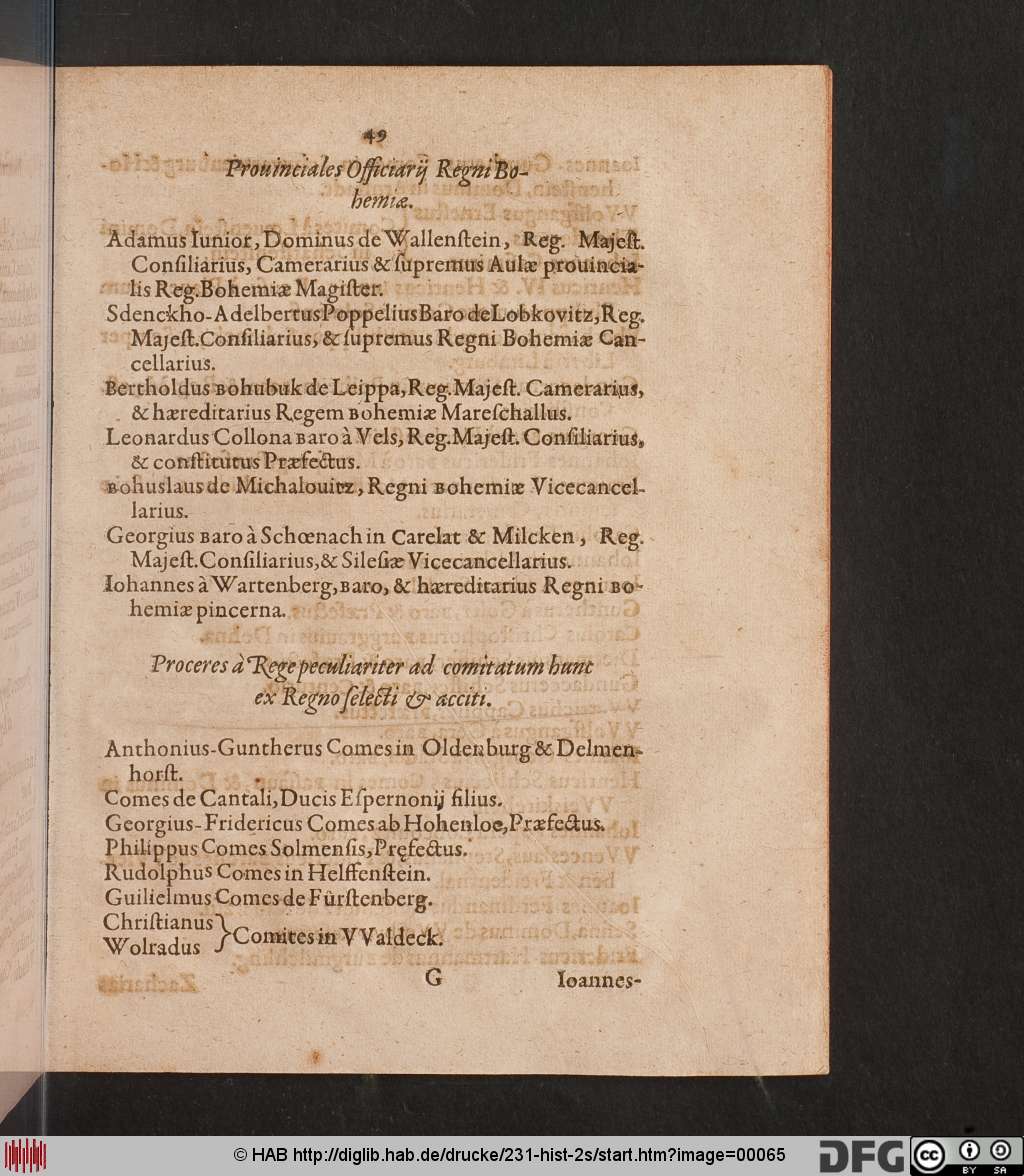 49
Prouinciales Officiarij Regni Bo-
hemiæ.
Adamus Iunior, Dominus de Wallenſtein, Reg. Majeſt.
Conſiliarius, Camerarius & ſupremus Aulæ prouincia-
lis Reg. Bohemiæ Magiſter.
Sdenckho-Adelbertus Poppelius Baro de Lobkovitz, Reg.
Majeſt. Conſiliarius, & ſupremus Regni Bohemiæ Can-
cellarius.
Bertholdus Bohubuk de Leippa, Reg. Majeſt. Camerarius,
& hæreditarius Regem Bohemiæ Mareſchallus.
Leonardus Collona Baro à Vels, Reg. Majeſt. Conſiliarius,
& conſtitutus Præfectus.
Bohuslaus de Michalouitz, Regni Bohemiæ Vicecancel-
larius.
Georgius Baro à Schœnach in Carelat & Milcken, Reg.
Majeſt. Conſiliarius, & Sileſiæ Vicecancellarius.
Iohannes à Wartenberg, Baro, & hæreditarius Regni Bo-
hemiæ pincerna.
Proceres à Rege peculiariter ad comitatum hunc
ex Regno ſelecti & acciti.
Anthonius-Guntherus Comes in Oldenburg & Delmen-
horſt.
Comes de Cantali, Ducis Eſpernonij filius.
Georgius-Fridericus Comes ab Hohenloe, Præfectus.
Philippus Comes Solmenſis, Pręfectus.
Rudolphus Comes in Helffenſtein.
Guilielmus Comes de Fürſtenberg.
Chriſtianus
Wolradus } Comites in VValdeck.
G Ioannes-
© HAB http://diglib.hab.de/drucke/231-hist-2s/start.htm?image=00065
DFG cc BY SA